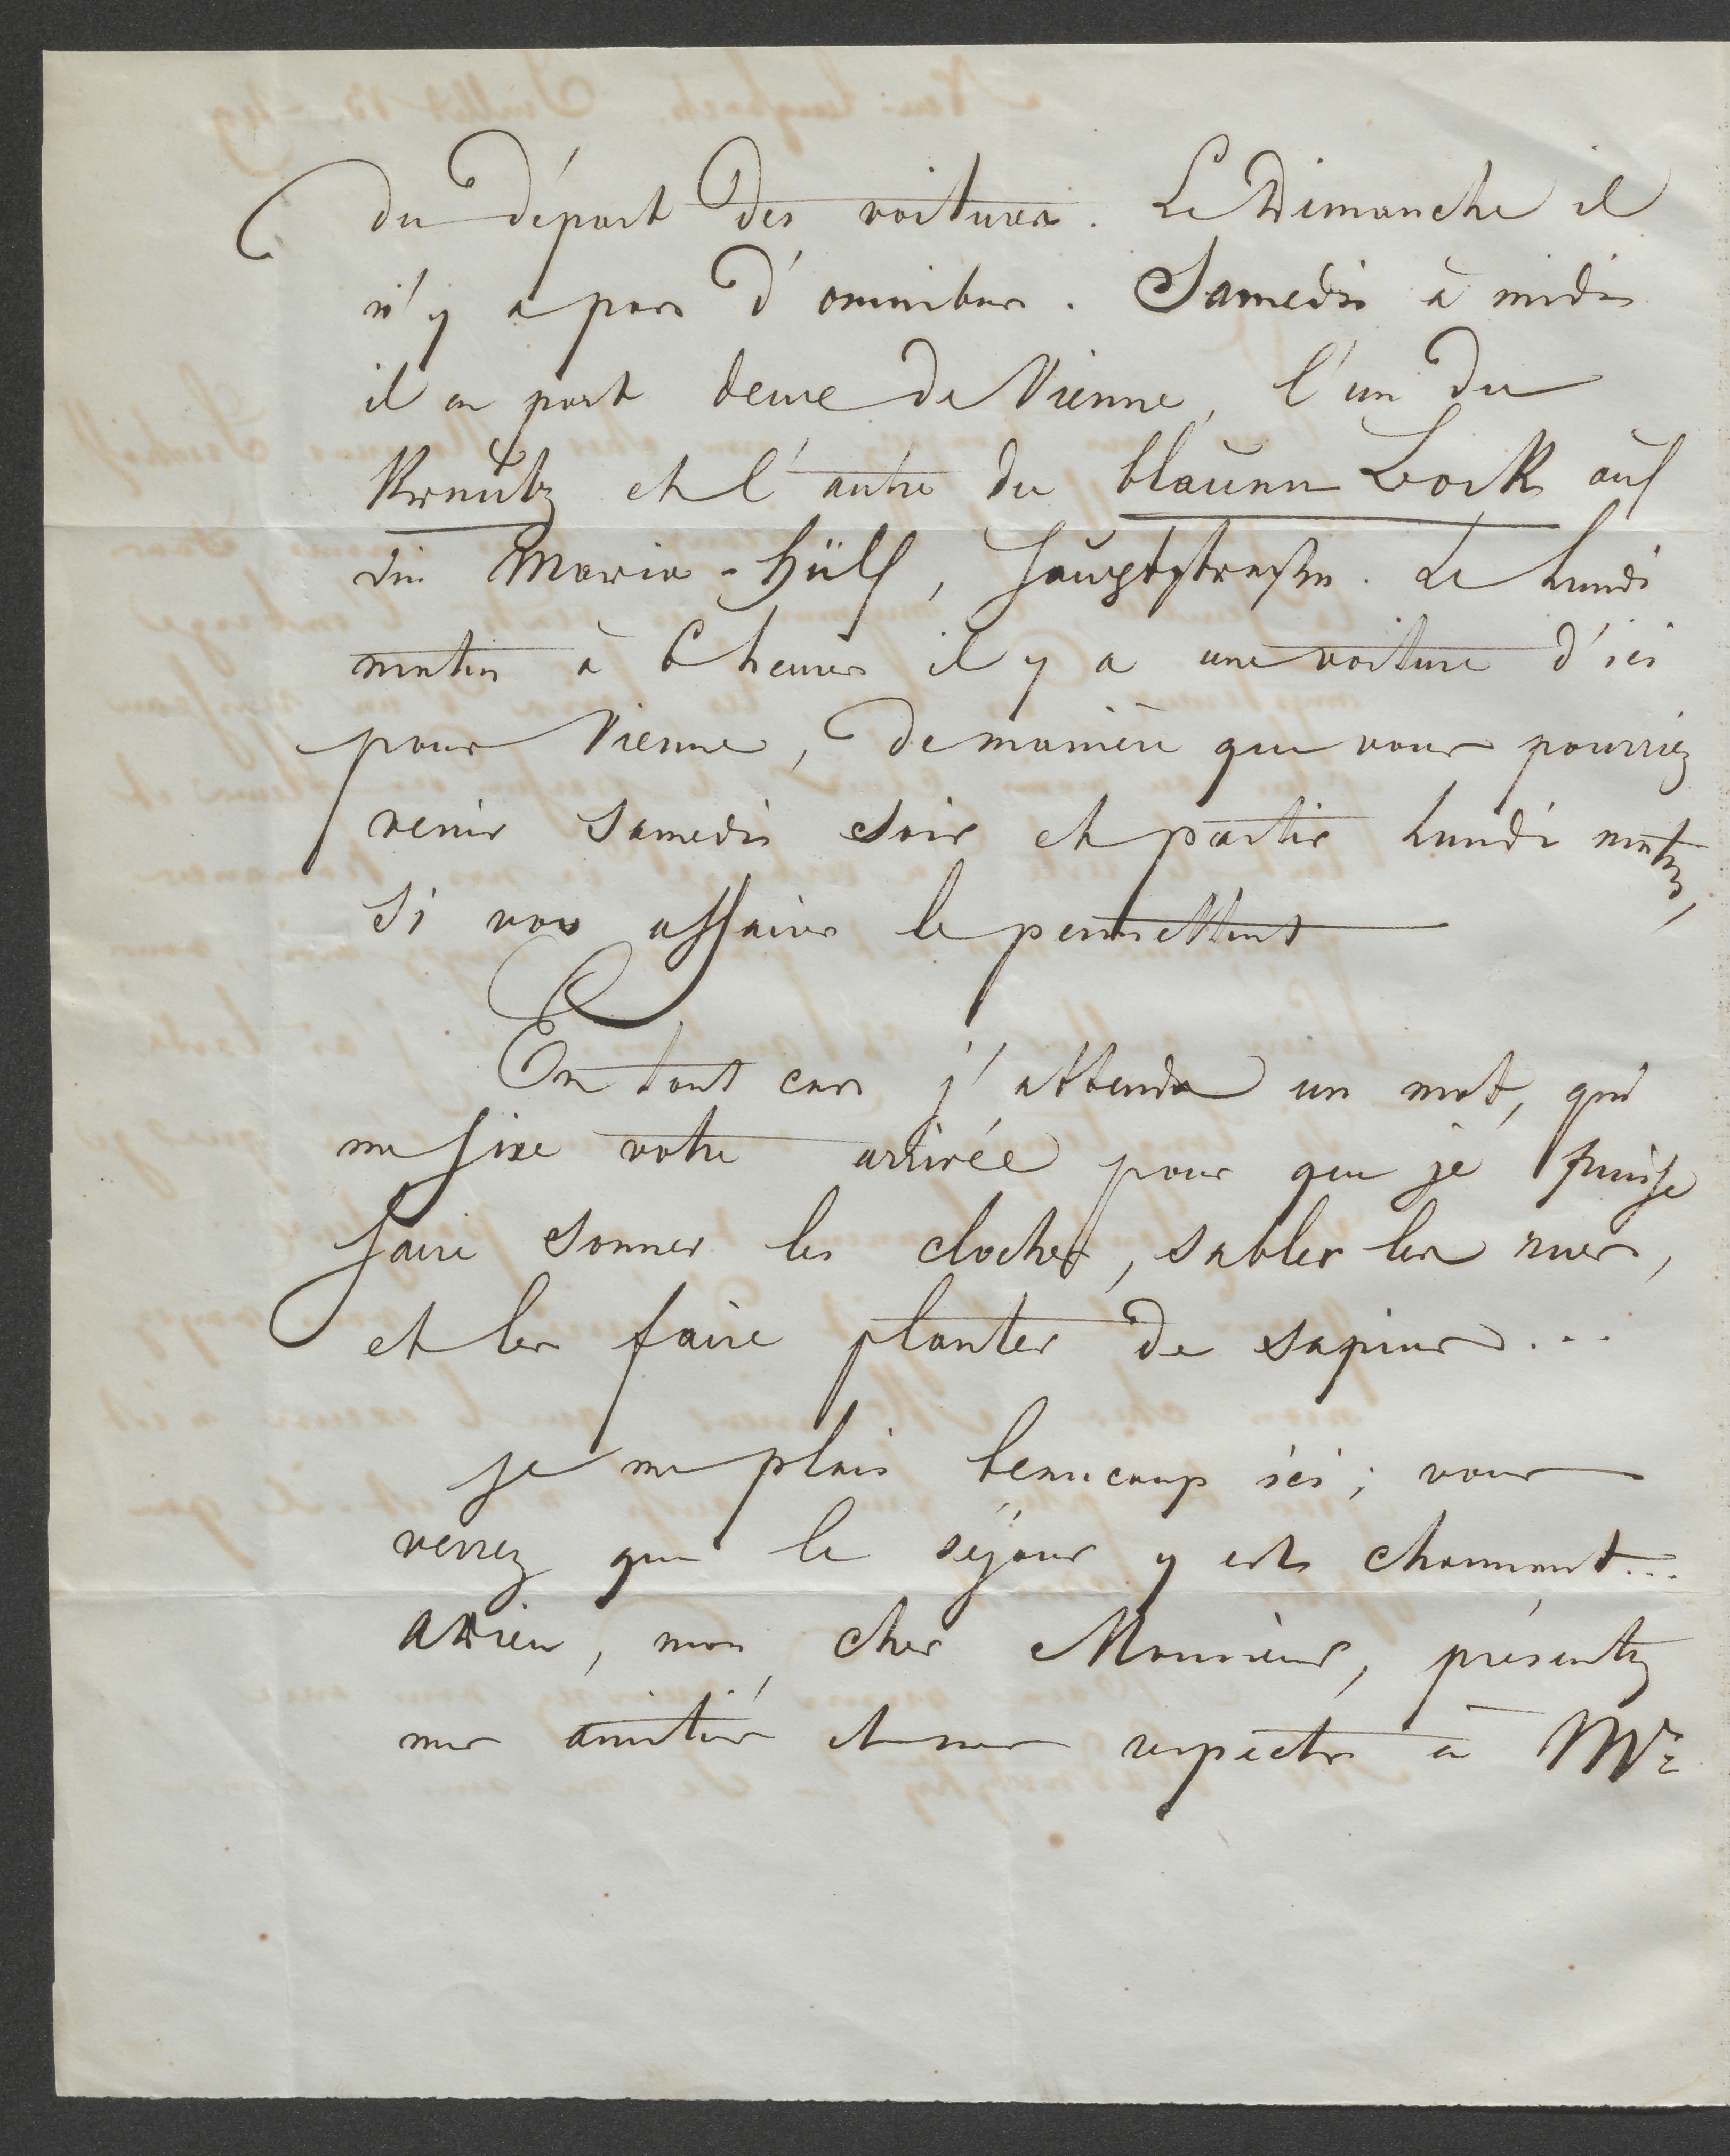 du départ des voitures. Le Dimanche il
n'y a pas d'omnibus. Samedi à midi
il en part deux de Vienne, l'un du
Kreutz et l'autre du blauen Bock auf
die Maria-Hülf, Hauptstraße. Le Lundi
matin à 6 heures il y a une voiture d'ici
pour Vienne, de manière que vous pourriez
venir Samedi soir et partir Lundi matin,
si vos affaires le permettent
En tout cas j'attends un mot, qui
me fixe votre arrivée pour que je puisse
faire sonner les cloches, sabler les rues,
et les faire planter de sapins...
Je me plais beaucoup ici; vous
verrez que le séjour y est charmant...
Adieu, mon cher Monsieur, présentez
mes amitiés et mes respects à